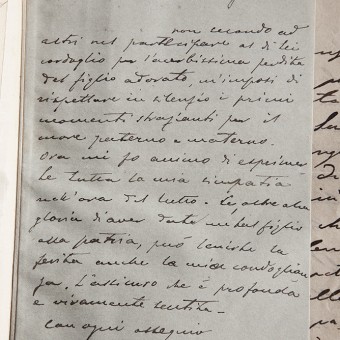 non secondo ad
altri nel partecipare al di lei
cordoglio per l'acerbissima perdita
del figlio adorato, m'imposi di
rispettare in silenzio i primi
momenti strazianti per il
cuore paterno e materno.
Ora mi fo animo di esprimer
le tutta la mia simpatia
nell'ora del lutto. Se, oltre alla
gloria di aver dato un bel figlio
alla patria, può lenirne la
ferita anche la mia condoglian
za, L'assicuro che è profonda
e vivamente sentita.
Con ogni ossequio